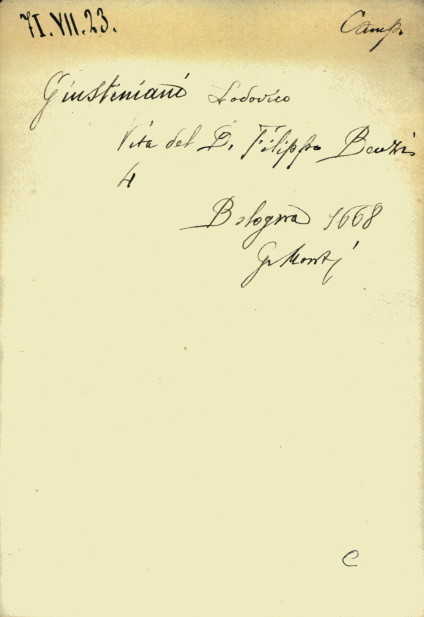 71.VII.23.
Camp.
Giusteniani Lodovico
Vita del B. Filippo Benizi
4
Bologna 1668
G. Monti
C